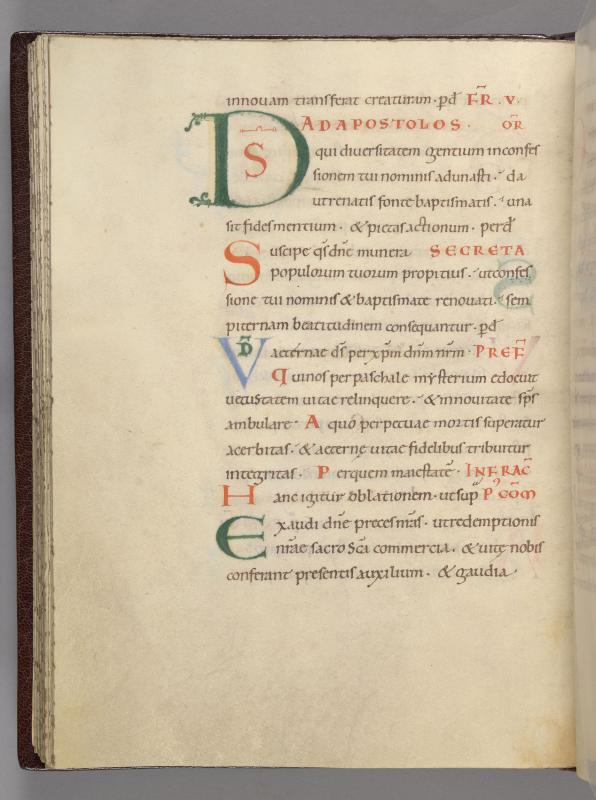 innovam transferat creaturam · p̄d F̄R · V ·
D̄S AD APOSTOLOS · ŌR
qui diversitatem gentium in confes
sionem tui nominis adunasti · da
ut renatis fonte baptismatis · una
sit fides mentium · & pietas actionum · perd̄
Suscipe q̄s dn̄e munera SECRETA
populorum tuorum propitius · ut confes
sione tui nominis & baptismate renovati · sem
piternam beatitudinem consequantur · p̄d
VD̄ aeterne d̄s per xp̄m dn̄m nr̄m · PREF̄
Qui nos per paschale mysterium edocuit
vetustatem vitae relinquere · & in novitate sp̄s
ambulare · A quo perpetuae mortis superatur
acerbitas · & aeternę vitae fidelibus tribuitur
integritas · Per quem maiestatē · INFRAC̄
Hanc igitur oblationem · ut sup̄ P' CŌM
Exaudi dn̄e preces nr̄as · ut redemptionis
nr̄ae sacro sc̄a commercia · & vitę nobis
conferant presentis auxilium · & gaudia